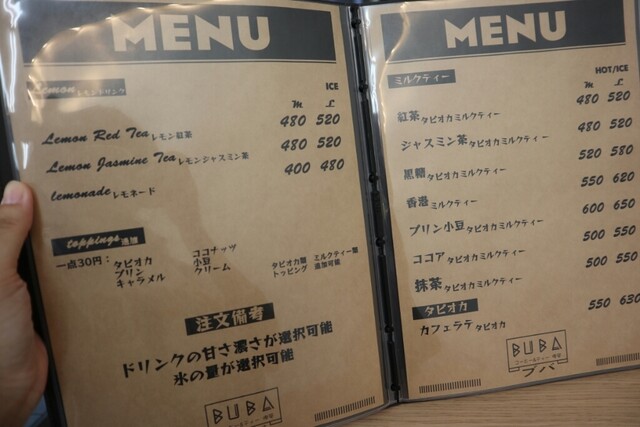 MENU
Lemon レモンドリンク
ICE
M L
Lemon Red Tea レモン紅茶 480 520
Lemon Jasmine Tea レモンジャスミン茶 480 520
lemonade レモネード 400 480
toppings 追加
一点30円：タピオカ ココナッツ
プリン 小豆
キャラメル クリーム
タピオカ類 ミルクティー類
トッピング 追加可能
注文備考
ドリンクの甘さ濃さが選択可能
氷の量が選択可能
BUBA
MENU
ミルクティー
HOT/ICE
M L
紅茶タピオカミルクティー 480 520
ジャスミン茶タピオカミルクティー 480 520
黒糖タピオカミルクティー 520 580
香港ミルクティー 550 620
プリン小豆タピオカミルクティー 600 650
ココアタピオカミルクティー 500 550
抹茶タピオカミルクティー 500 550
タピオカ
カフェラテタピオカ 550 630
BUBA
ブバ